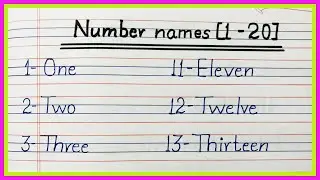 Number names [1-20]
1- One 11- Eleven
2- Two 12- Twelve
3- Three 13- Thirteen